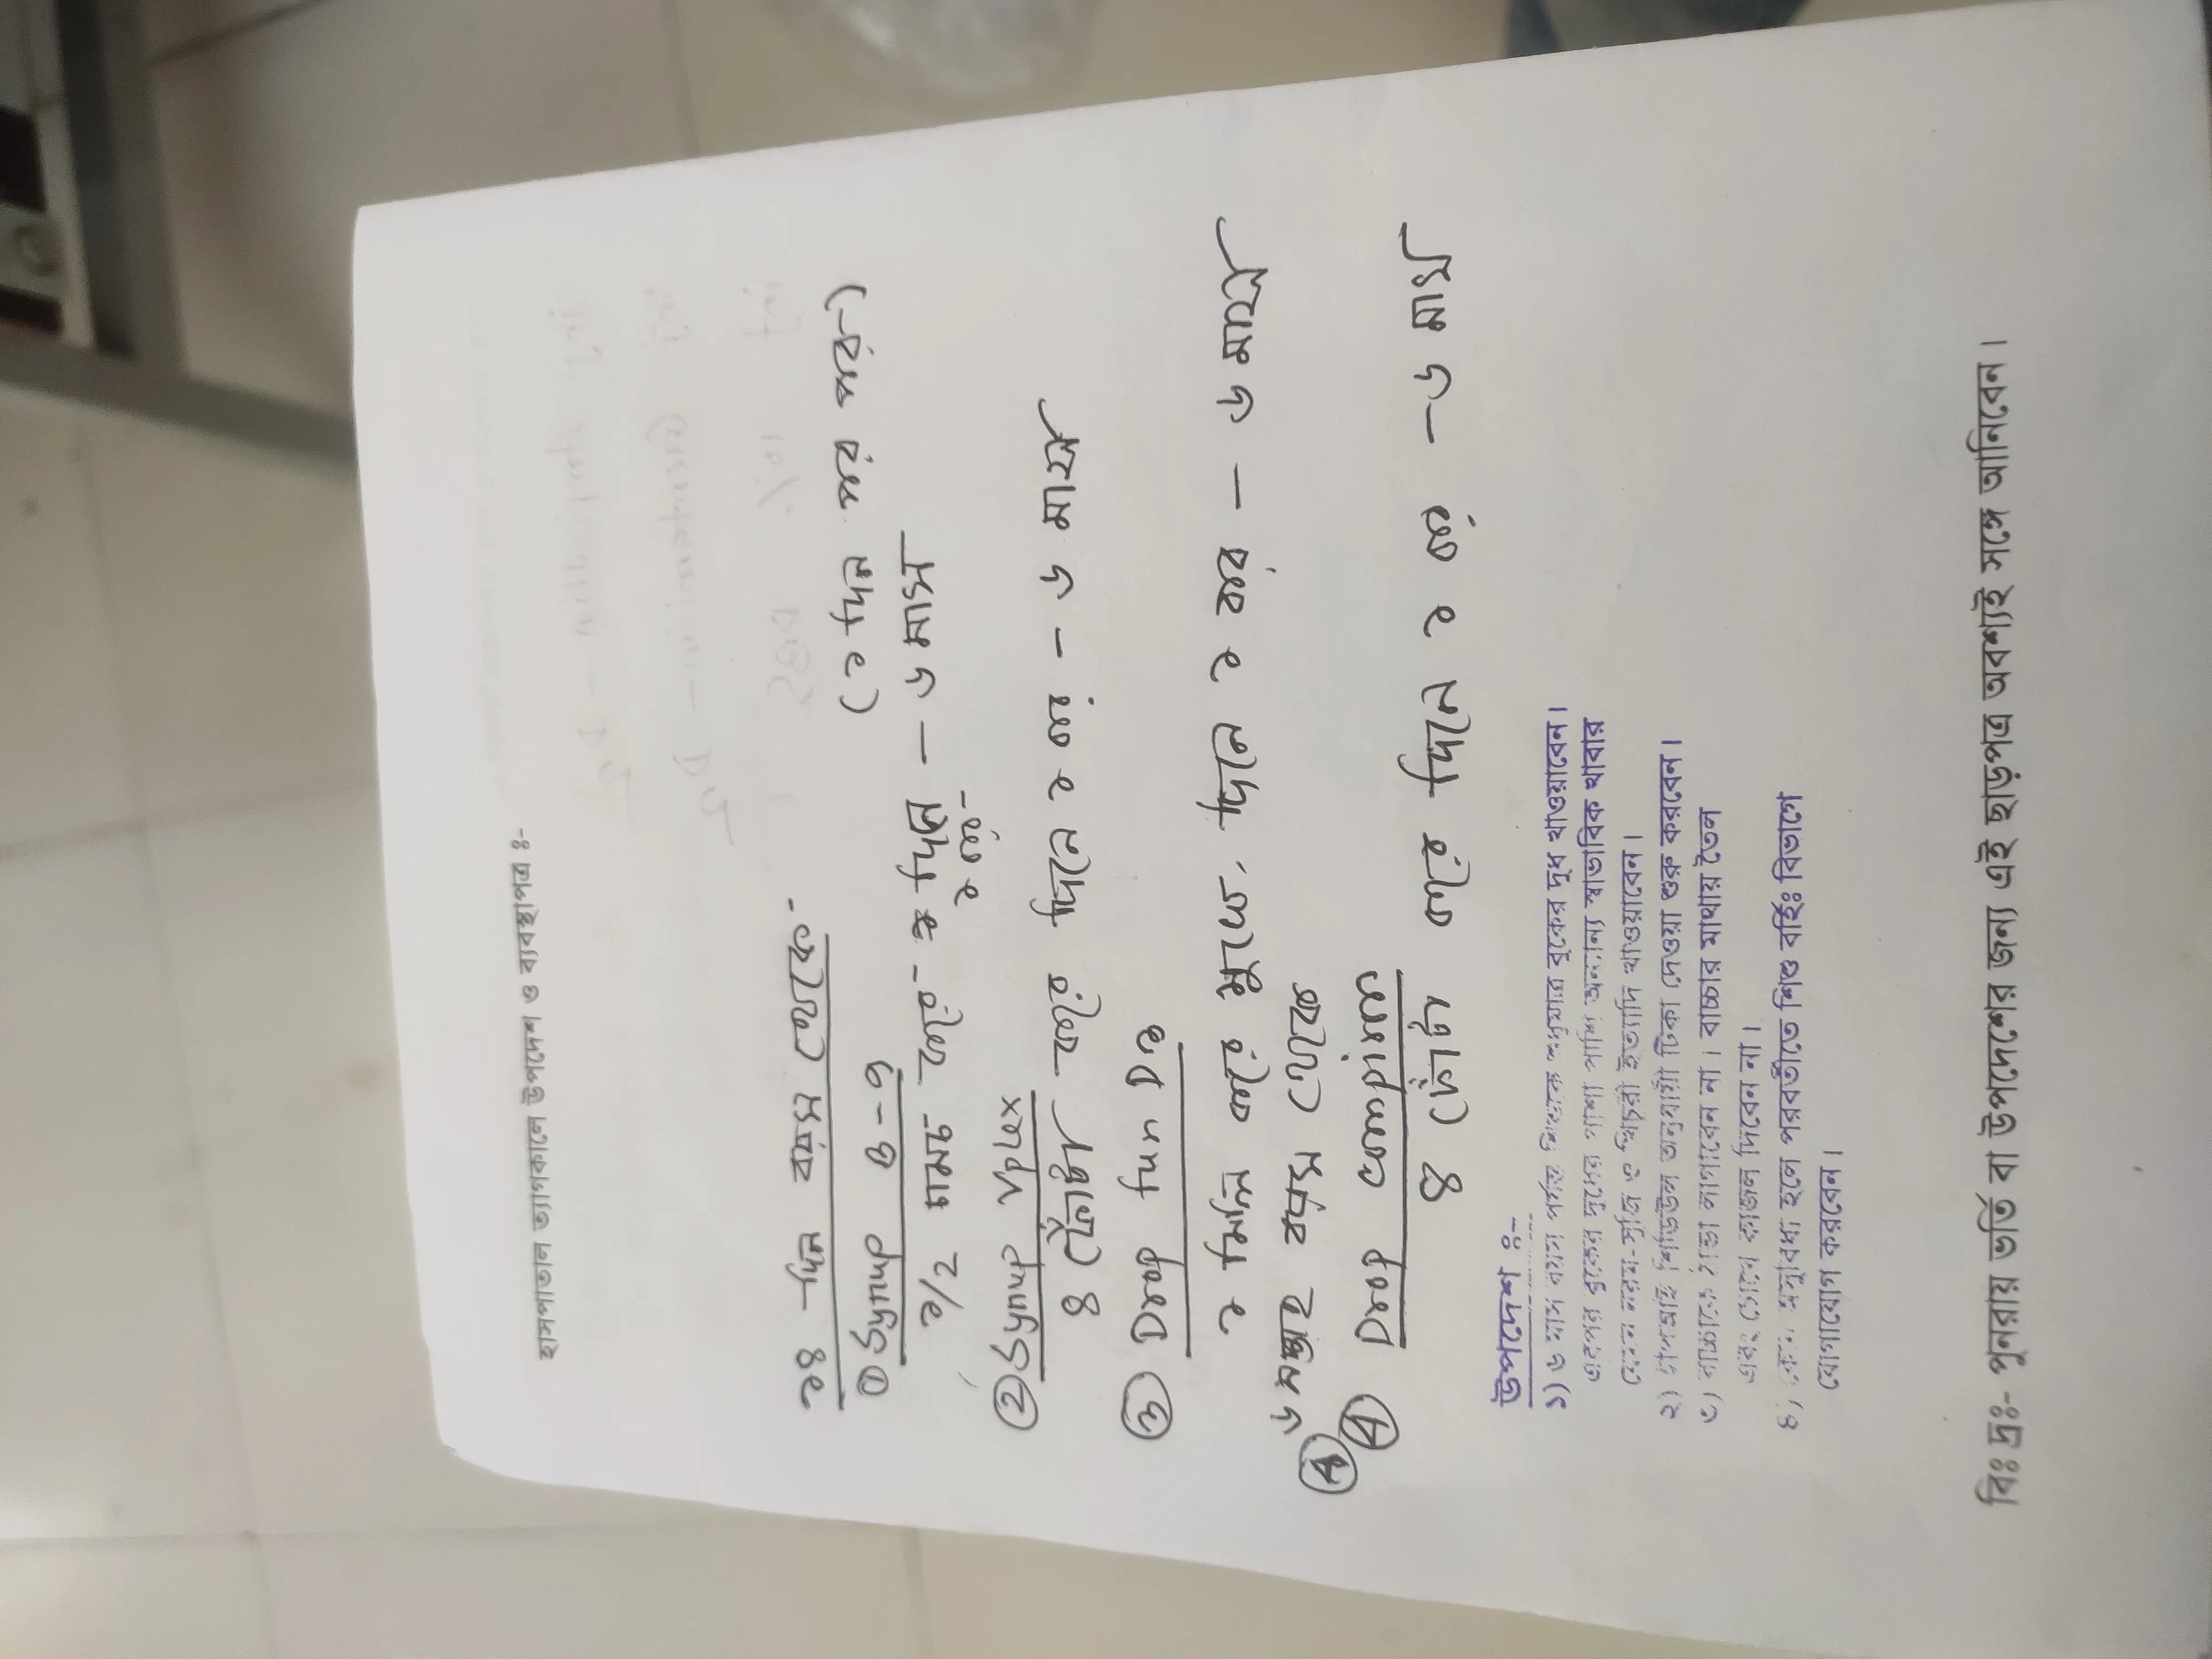 হাসপাতাল ত্যাগকালে উপদেশ ও ব্যবস্থাপত্র ঃ-
১৪ দিন বয়স থেকে-
① Syrup B-9 (১ দিন পর পর-)
১/২ চামচ করে- দিনে — ৩ মাস
১ বার-
② Syrup Vplex
৪ ফোঁটা করে দিনে ১ বার - ৩ মাস
③ Drop Fun D3
১ মিলি করে মুখে. দিনে ১ বার — ৩ মাস
৬ সপ্তাহ বয়স থেকে
④ Drop compiron
৪ ফোঁটা করে দিনে ২ বার - ৩ মাস
উপদেশ ঃ-
১) ৬ মাস বয়স পর্যন্ত শিশুকে শুধুমাত্র বুকের দুধ খাওয়াবেন।
এরপর বুকের দুধের পাশা পাশি অন্যান্য স্বাভাবিক খাবার
যেমন নরম-সুজি ও খিচুরী ইত্যাদি খাওয়াবেন।
২) দেশজ সিডিউল অনুযায়ী টিকা দেওয়া শুরু করবেন।
৩) বাচ্চাকে ঠান্ডা লাগাবেন না। বাচ্চার মাথায় তৈল
এবং চোখে কাজল দিবেন না।
৪) কোন অসুবিধা হলে পরবর্তীতে শিশু বর্হিঃ বিভাগে
যোগাযোগ করবেন।
বিঃ দ্রঃ- পুনরায় ভর্তি বা উপদেশের জন্য এই ছাড়পত্র অবশ্যই সঙ্গে আনিবেন।